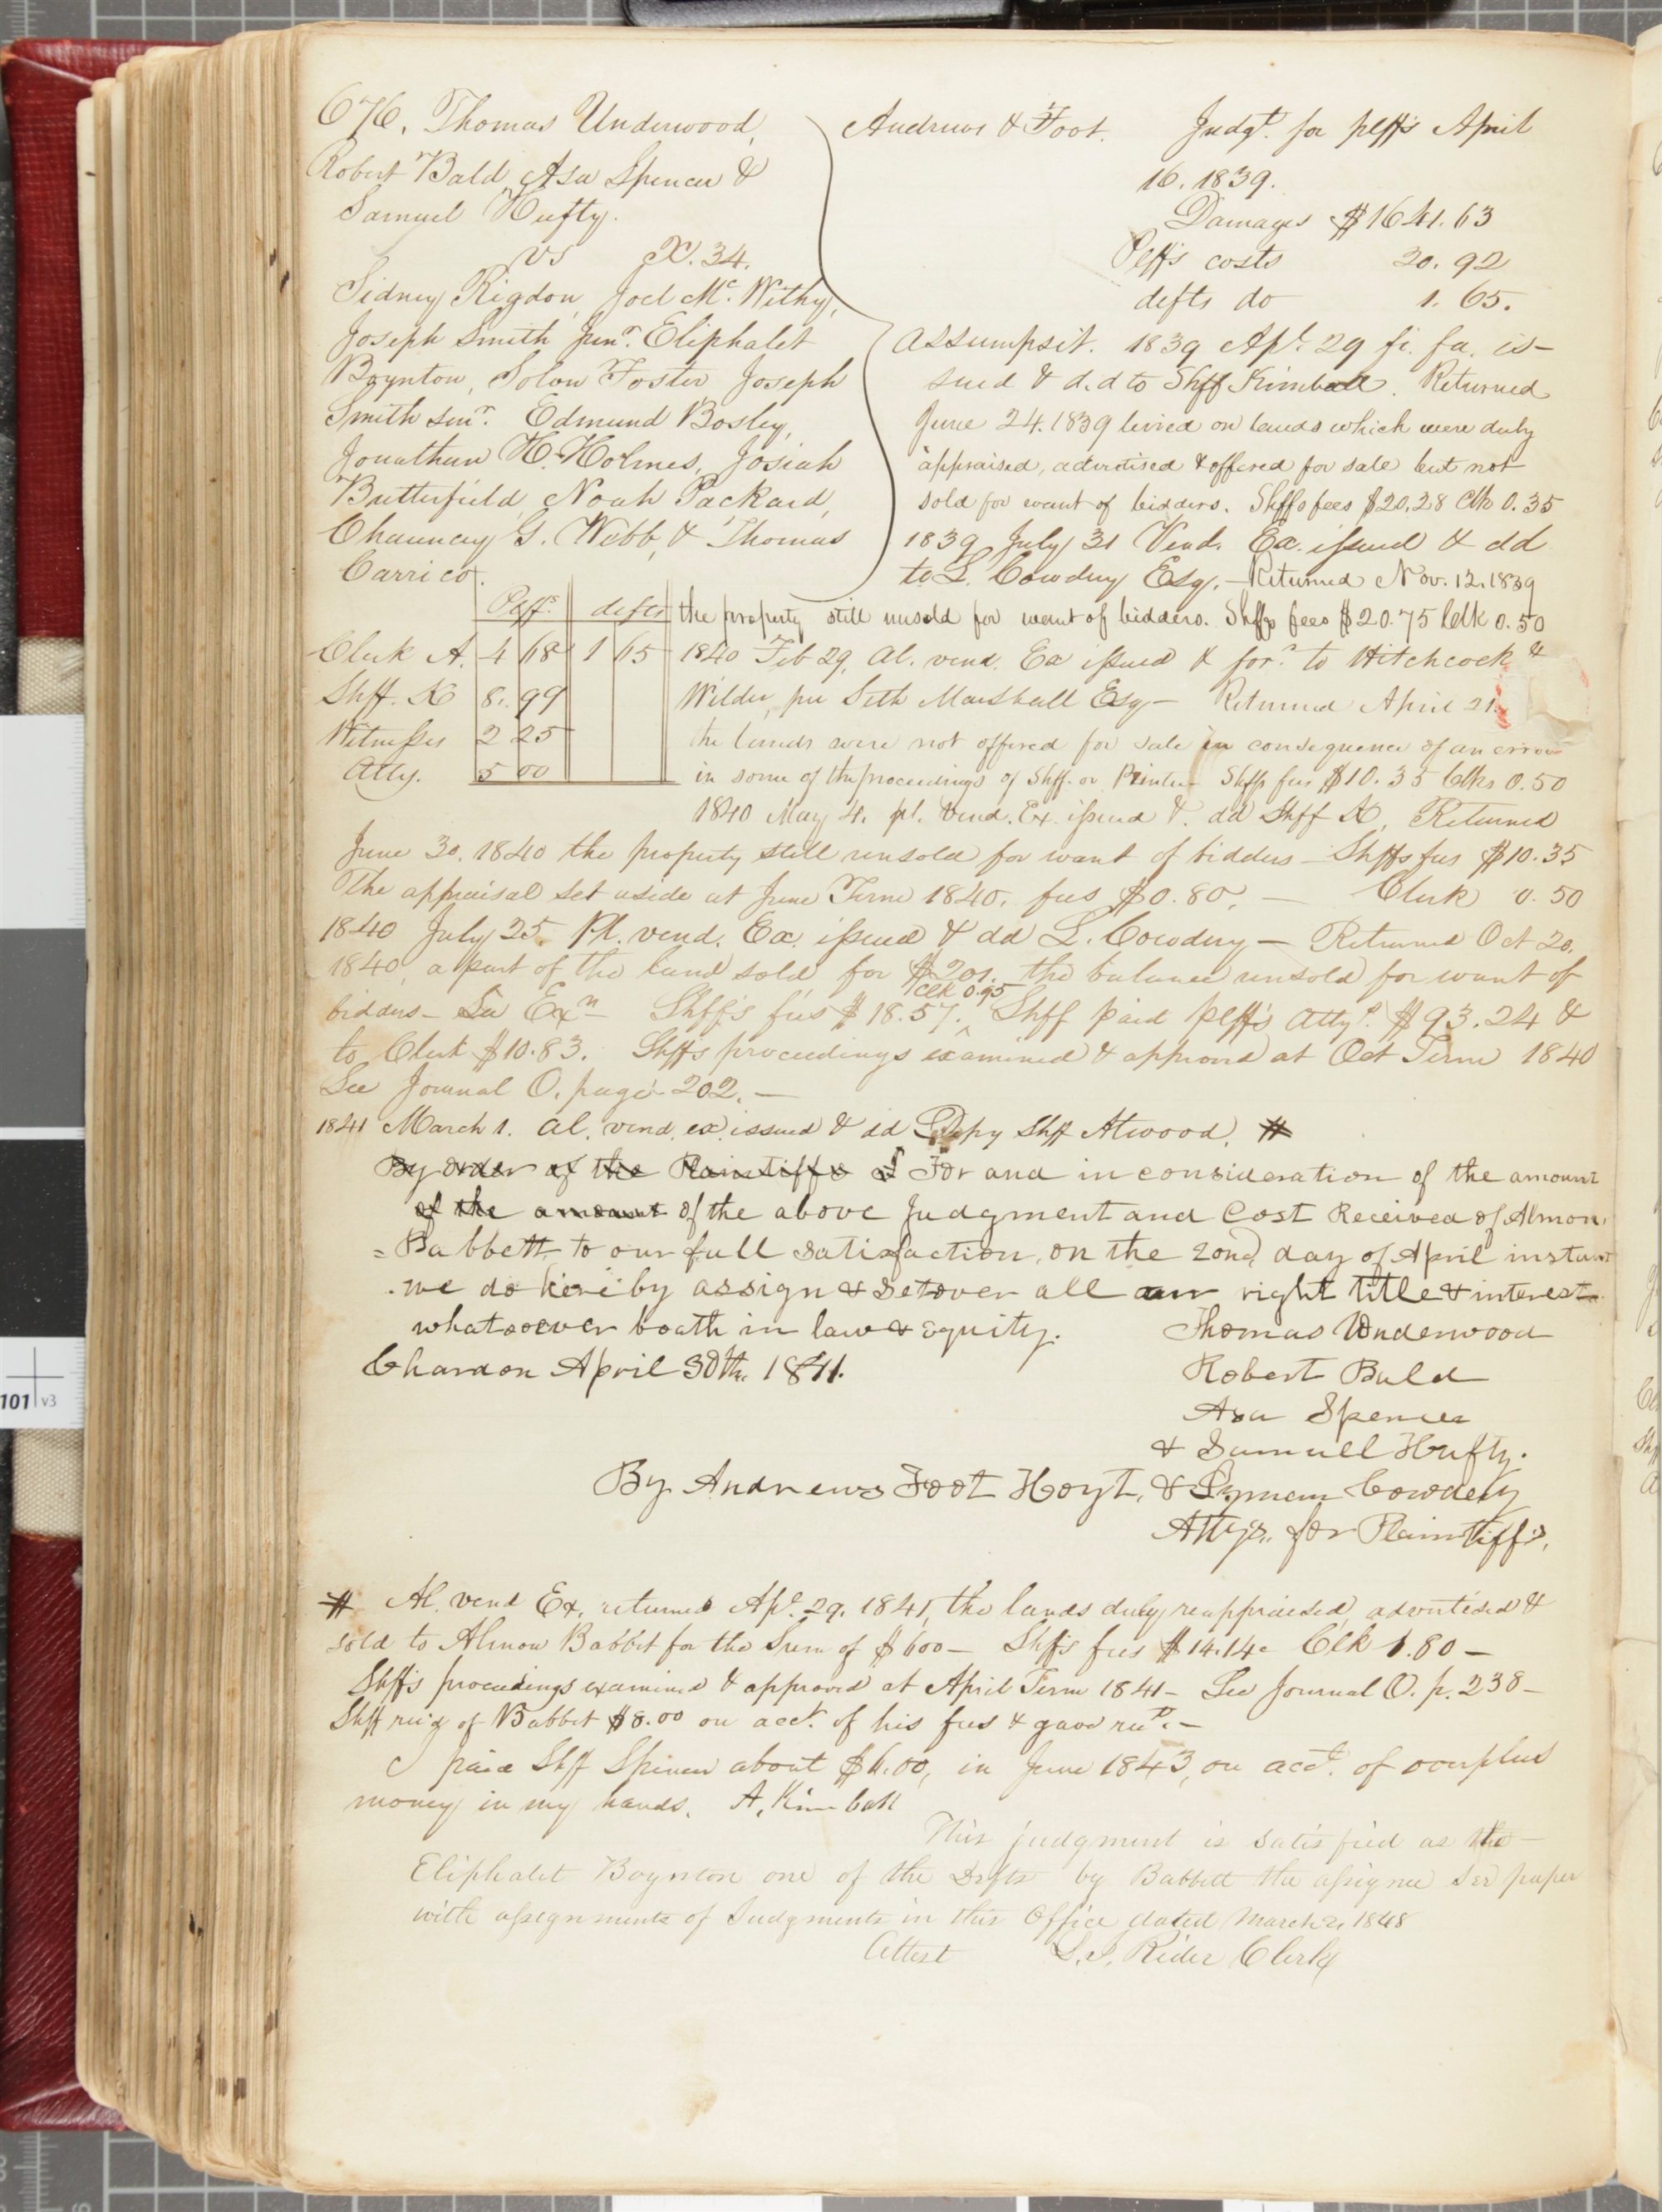 676. Thomas Underwood,
Robert Bald, Asa Spencer &
Samuel Hufty.
vs X. 34.
Sidney Rigdon, Joel Mc. Withy,
Joseph Smith Junr. Eliphalet
Boynton, Solon Foster Joseph
Smith Senr. Edmund Bosley,
Jonathan H. Holmes, Josiah
Butterfield, Noah Packard,
Chauncey G. Webb, & Thomas
Carrico.
Andrews & Foot.
Judgt. for plffs April
16. 1839.
Damages $1641.63
Plffs costs 20.92
defts do 1.65.
Assumpsit. 1839 Apl. 29 fi. fa. is-
sued & d.d to Shff Kimball. Returned
June 24. 1839 levied on lands which were duly
appraised, advertised & offered for sale but not
sold for want of bidders. Shffs fees $20.28 Clk 0.35
1839 July 31 Vend. Ex. issued & dd
to L. Cowdery Esq. - Returned Nov. 12. 1839
the property still unsold for want of bidders. Shffs fees $20.75 Clk 0.50
Plffs. defts
Clerk A. 4 68 1 65
Shff. K 8. 99
Witnesses 2 25
Atty. 5 00
1840 Feb 29, Al. vend. Ex issued & for.d to Hitchcock &
Wilder, per Seth Marshall Esq - Returned April 21.
the lands were not offered for sale in consequence of an error
in some of the proceedings of Shff. or Printer - Shffs fees $10.35 Clks 0.50
1840 May 4. pl. Vend. Ex. issued & dd Shff K. Returned
June 30. 1840 the property still unsold for want of bidders - Shffs fees $10.35
The appraisal set aside at June Term 1840. fees $0.80. - Clerk 0.50
1840 July 25. Pl. vend. Ex. issued & dd L. Cowdery - Returned Oct 20.
1840, a part of the land sold, for $201. the balance unsold for want of
Clk 0.95
bidders - See Exn Shff's fees $18.57. Shff paid plffs Atty. $93.24 &
to Clerk $10.83. Shffs proceedings examined & approved at Oct Term 1840
See Journal O. page 202. -
1841 March 1. Al. vend. ex. issued & dd Depy Shff Atwood. #
By order of the Plaintiffs & For and in consideration of the amount
of the amount of the above Judgment and Cost Received of Almon
= Babbett to our full satisfaction, on the 20nd day of April instant
we do hereby assign & setover all our right title & interest
whatsoever boath in law & equity.
Chardon April 30th. 1841.
Thomas Underwood
Robert Bald
Asa Spencer
& Samuel Hufty.
By Andrews Foot Hoyt, & Lyman Cowdery
Attys. for Plaintiffs,
# Al. vend Ex. returned Apl. 29. 1841, the lands duly reappraised, advertised &
sold to Almon Babbit for the Sum of $600 - Shffs fees $14.14. Clk 1.80 -
Shffs proceedings examined & approved at April Term 1841 - See Journal O. p. 238 -
Shff rec'd of Babbit $8.00 on acct. of his fees & gave rect. -
I paid Shff Spencer about $6.00, in June 1843, on acct. of overplus
money in my hands. A. Kimball
This judgment is satisfied as the
Eliphalet Boynton one of the Defts by Babbett the assignee see paper
with assignments of Judgments in this Office dated March 2, 1848
Attest Rider Clerk